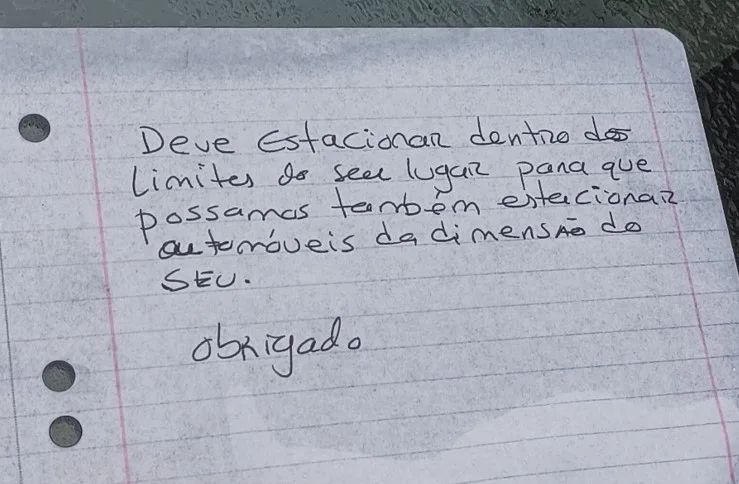 Deve Estacionar dentro dos
Limites do seu lugar para que
possamos também estacionar
automóveis da dimensão do
SEU.
obrigado